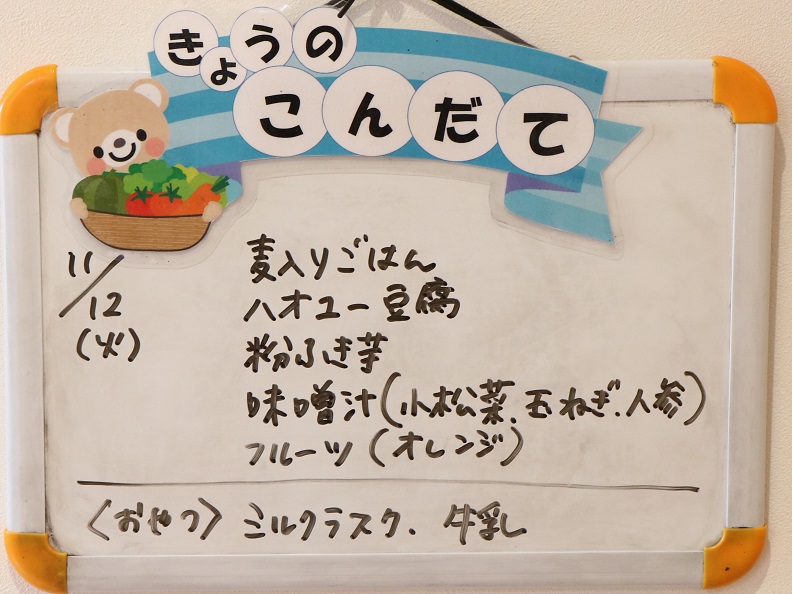 きょうの
こんだて
11/12
(火)
麦入りごはん
ハオユー豆腐
粉ふき芋
味噌汁(小松菜、玉ねぎ、人参)
フルーツ(オレンジ)
〈おやつ〉ミルクラスク、牛乳